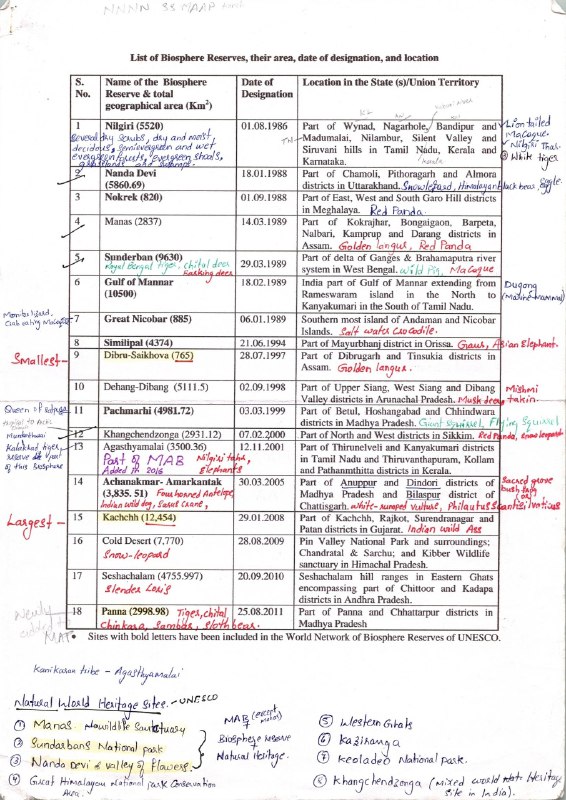 NNNN SS MAAP
List of Biosphere Reserves, their area, date of designation, and location
S. No. Name of the Biosphere Reserve & total geographical area (Km2) Date of Designation Location in the State (s)/Union Territory
1 Nilgiri (5520) 01.08.1986 Part of Wynad, Nagarhole, Bandipur and
Madumalai, Nilambur, Silent Valley and
Siruvani hills in Tamil Nadu, Kerala and
Karnataka.
Several dry scrubs, dry and moist
decidous, semievergreen and wet
evergreen forests, evergreen sholas,
grasslands and swamps.
Lion tailed
Macaque
Nilgiri Thar
White tiger
Kerala
2 Nanda Devi 18.01.1988 Part of Chamoli, Pithoragarh and Almora
(5860.69) districts in Uttarakhand. Snowleopard, Himalayan black bear, Eagle.
3 Nokrek (820) 01.09.1988 Part of East, West and South Garo Hill districts
in Meghalaya. Red Panda
4 Manas (2837) 14.03.1989 Part of Kokrajhar, Bongaigaon, Barpeta,
Nalbari, Kamprup and Darang districts in
Assam. Golden langur, Red Panda
5 Sunderban (9630) 29.03.1989 Part of delta of Ganges & Brahamaputra river
Royal Bengal tiger, chital deer system in West Bengal. Wild Pig, Macaque
Barking deer
6 Gulf of Mannar 18.02.1989 India part of Gulf of Mannar extending from
(10500) Rameswaram island in the North to
Kanyakumari in the South of Tamil Nadu.
Dugong
(Marine mammal)
Monitor lizard,
Crab eating Macaque
7 Great Nicobar (885) 06.01.1989 Southern most island of Andaman and Nicobar
Islands. Salt water crocodile.
8 Similipal (4374) 21.06.1994 Part of Mayurbhanj district in Orissa. Gaur, Asian Elephant.
Smallest- 9 Dibru-Saikhova (765) 28.07.1997 Part of Dibrugarh and Tinsukia districts in
Assam. Golden langur.
10 Dehang-Dibang (5111.5) 02.09.1998 Part of Upper Siang, West Siang and Dibang
Valley districts in Arunachal Pradesh. Mishmi
Musk deer, takin.
Queen of satpura
11 Pachmarhi (4981.72) 03.03.1999 Part of Betul, Hoshangabad and Chhindwara
districts in Madhya Pradesh. Giant squirrel, Flying Squirrel
12 Khangchendzonga (2931.12) 07.02.2000 Part of North and West districts in Sikkim. Red panda, snow leopard
Mundanthurai
Kalakkad tiger
reserve is part
of this Biosphere
13 Agasthyamalai (3500.36) 12.11.2001 Part of Thirunelveli and Kanyakumari districts
Part of MAB Nilgiri tahr, in Tamil Nadu and Thiruvanthapuram, Kollam
Added in 2016 Elephants and Pathanmthitta districts in Kerala.
14 Achanakmar- Amarkantak 30.03.2005 Part of Anuppur and Dindori districts of
(3,835. 51) Four horned Antelope, Madhya Pradesh and Bilaspur district of
Indian wild dog, Sarus Crane, Chattisgarh. White-rumped vulture, Philautus sanctisilvaticus
Sacred grove
bush frog
or
Largest- 15 Kachchh (12,454) 29.01.2008 Part of Kachchh, Rajkot, Surendranagar and
Patan districts in Gujarat. Indian wild Ass
16 Cold Desert (7,770) 28.08.2009 Pin Valley National Park and surroundings;
Snow-leopard Chandratal & Sarchu; and Kibber Wildlife
sanctuary in Himachal Pradesh.
17 Seshachalam (4755.997) 20.09.2010 Seshachalam hill ranges in Eastern Ghats
Slender Loris encompassing part of Chittoor and Kadapa
districts in Andhra Pradesh.
18 Panna (2998.98) Tiger, chital, 25.08.2011 Part of Panna and Chhattarpur districts in
Chinkara, Sambar, Sloth bear. Madhya Pradesh
Newly
added to
MAP
• Sites with bold letters have been included in the World Network of Biosphere Reserves of UNESCO.
Kanikaran tribe - Agasthyamalai
Natural World Heritage Sites. - UNESCO
① Manas wildlife Sanctuary
② Sundarbans National park
③ Nanda Devi & Valley of Flowers.
④ Great Himalayan National park Conservation
Area.
MAB (except Manas)
Biosphere reserve
Natural Heritage.
⑤ Western Ghats
⑥ Kaziranga
⑦ Keoladeo National park.
⑧ Khangchendzonga (Mixed world Heritage
site in India).